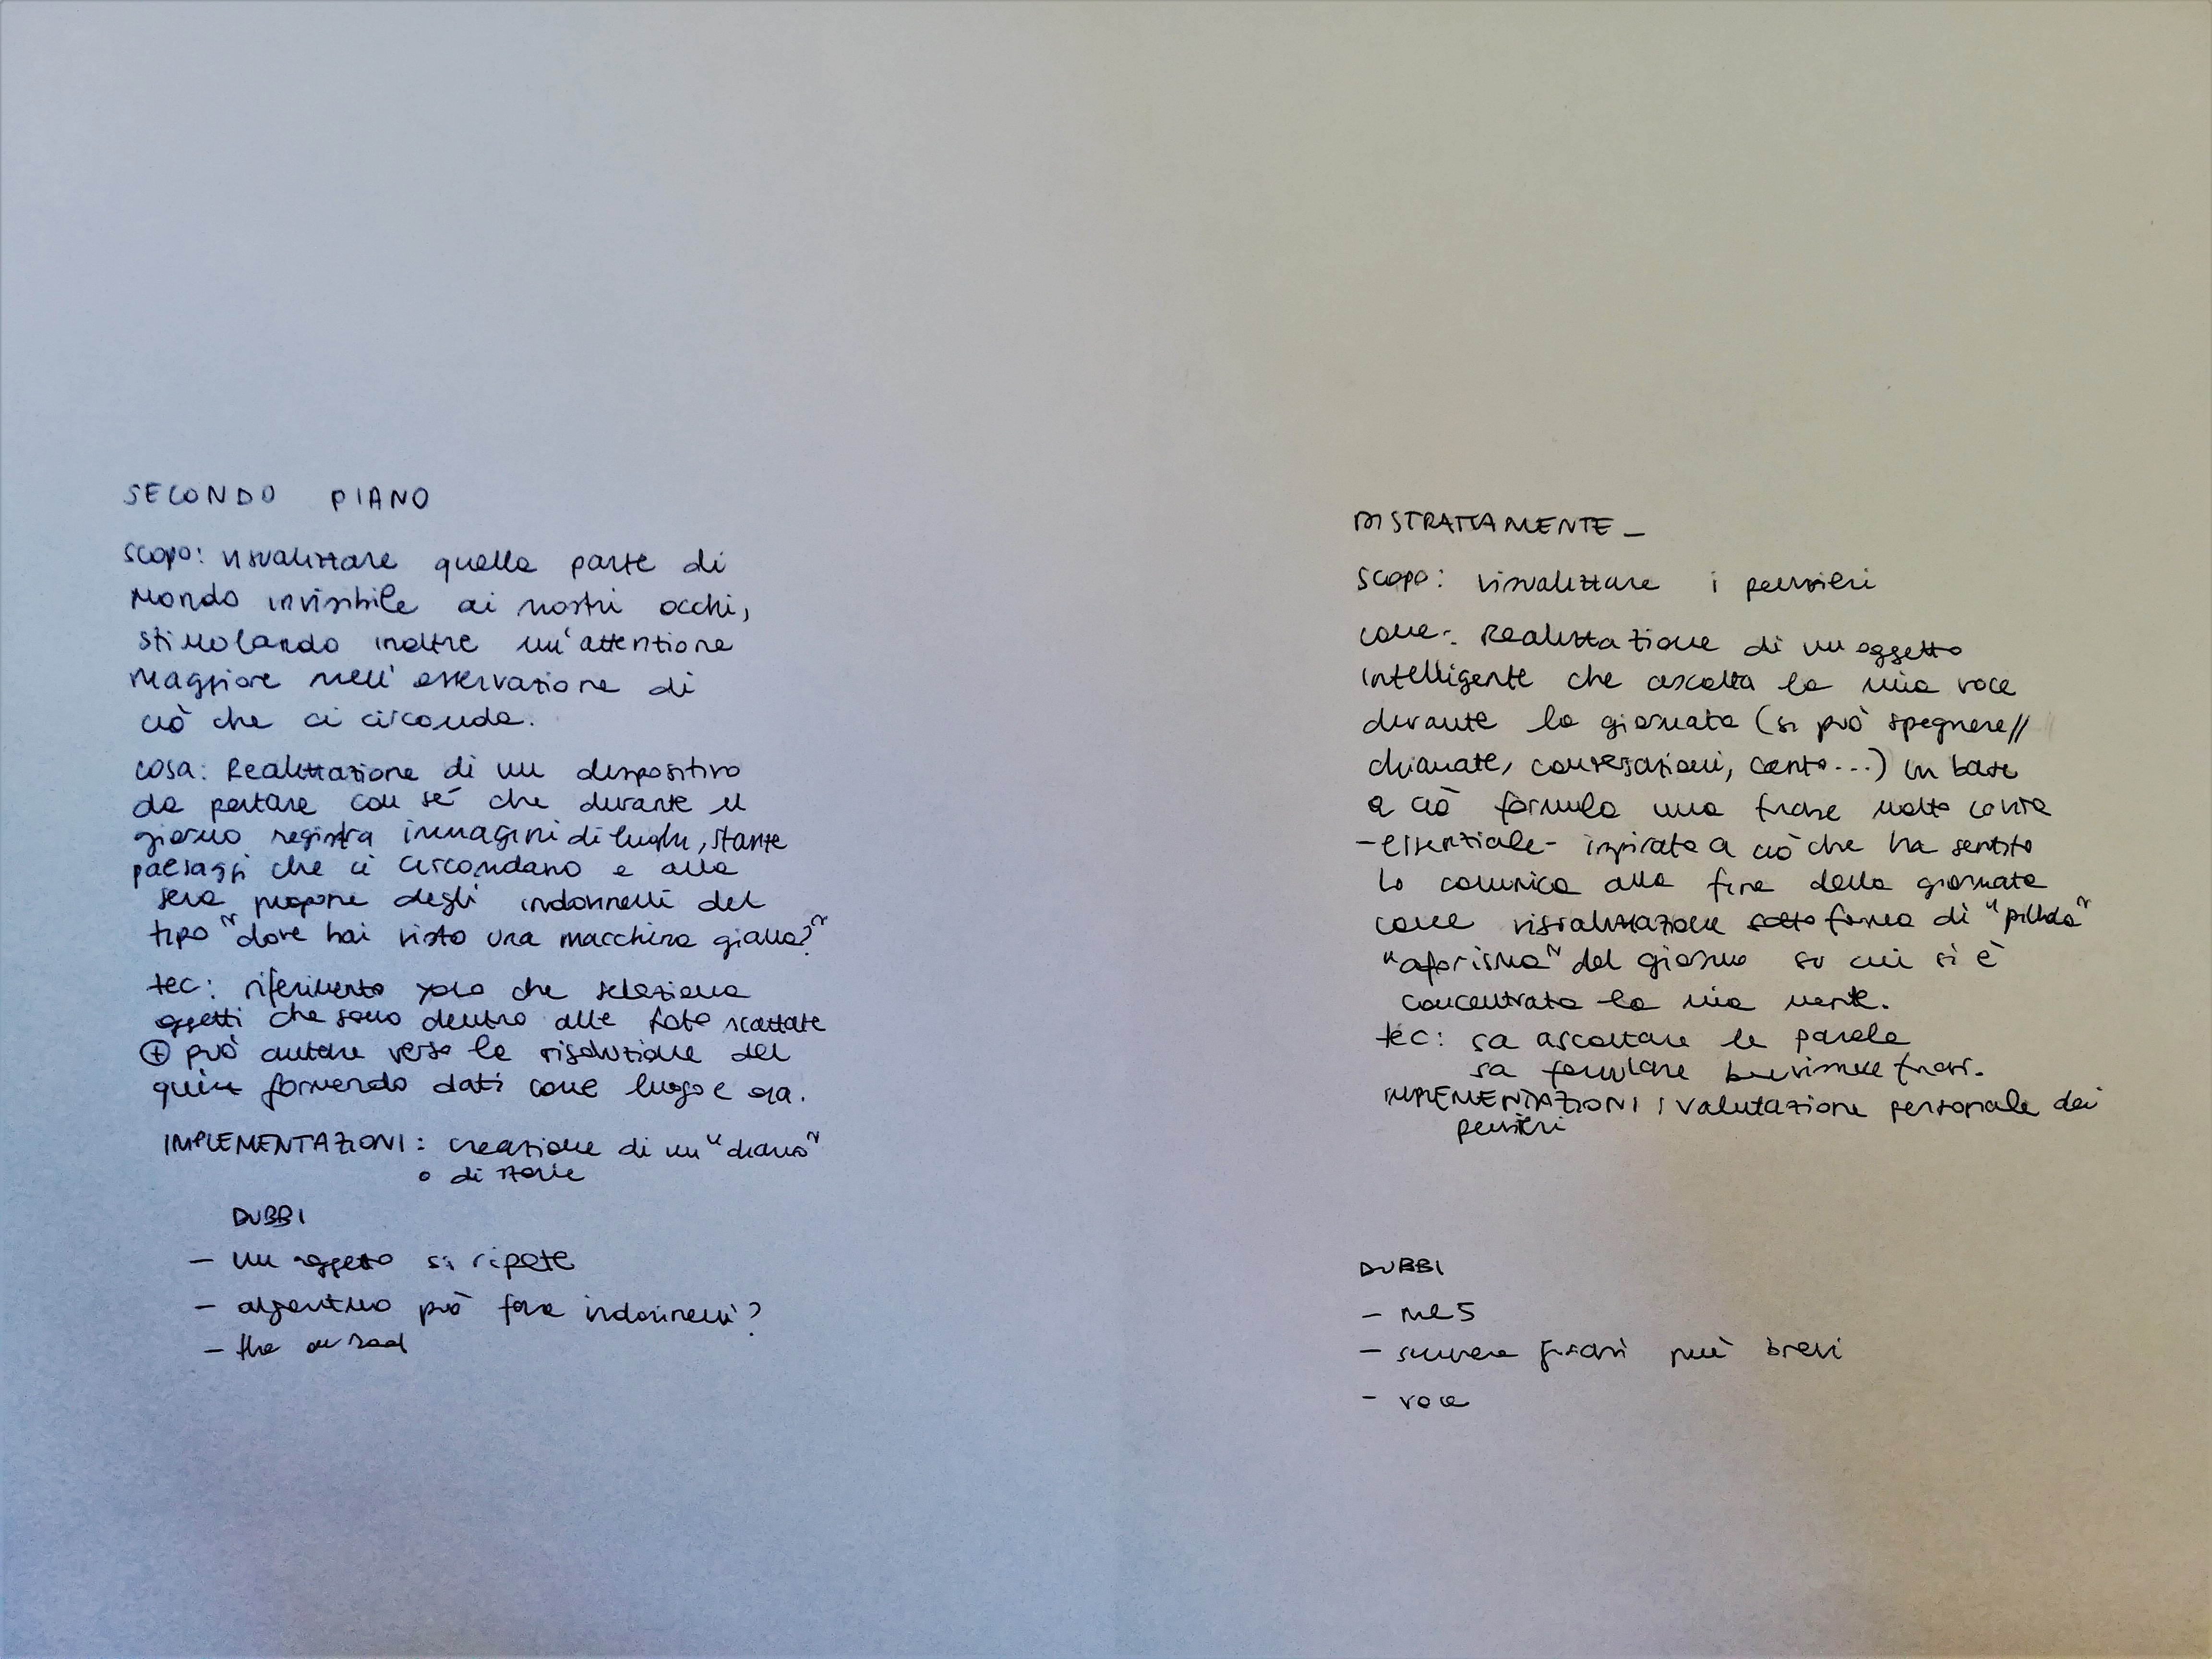 SECONDO PIANO
scopo: visualizzare quella parte di
mondo invisibile ai nostri occhi,
stimolando inoltre un'attenzione
maggiore nell'osservazione di
ciò che ci circonda.
cosa: Realizzazione di un dispositivo
da portare con sé che durante il
giorno registra immagini di luoghi, stanze
paesaggi che ci circondano e alla
sera propone degli indovinelli del
tipo "dove hai visto una macchina gialla?"
tec: riferimento yolo che seleziona
oggetti che sono dentro alle foto scattate
+ può aiutare verso la risoluzione del
quiz fornendo dati come luogo e ora.
IMPLEMENTAZIONI: creazione di un "diario"
o di storie
DUBBI
- un oggetto si ripete
- algoritmo può fare indovinelli?
- the road
DISTRATTAMENTE_
scopo: visualizzare i pensieri
come: Realizzazione di un oggetto
intelligente che ascolta la mia voce
durante la giornata (si può spegnere//
chiamate, conversazioni, canto...) in base
a ciò formula una frase molto corta
-essenziale- ispirata a ciò che ha sentito
lo comunica alla fine della giornata
come visualizzazione sotto forma di "pillola"
"aforisma" del giorno su cui si è
concentrata la mia mente.
tec: sa ascoltare le parole
sa formulare brevissime frasi.
IMPLEMENTAZIONI: valutazione personale dei
pensieri
DUBBI
- ml5
- scrivere frasi più brevi
- voce